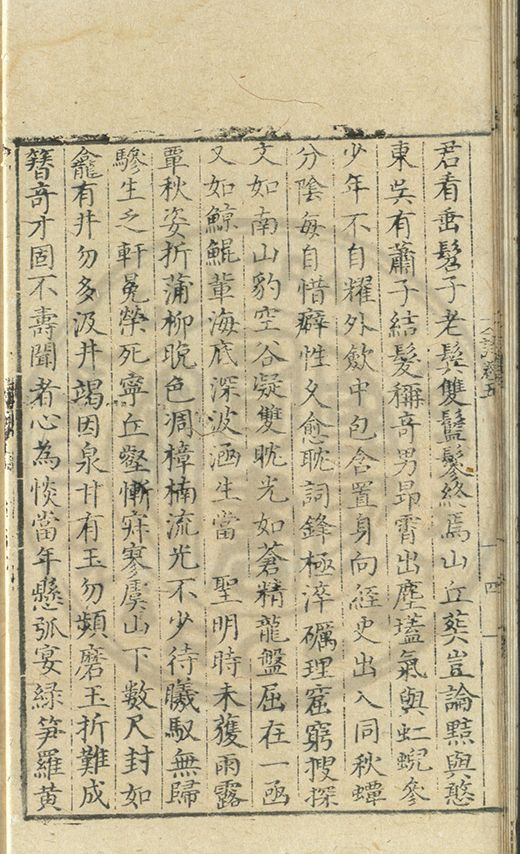 君看垂髫子老鬓雙鬖鬖終焉山丘葬豈論黠與憨
東吳有蕭子結髮稱奇男昂霄出塵壒氣與虹蜺參
少年不自耀外歛中包含置身向經史出入同秋蟫
分陰每自惜癖性久愈耽詞鋒極淬礪理窟窮捜探
文如南山豹空谷凝雙眈光如蒼精龍盤屈在一函
又如鯨鯤輩海底深波涵生當 聖明時未獲雨露
覃秋姿折蒲柳晚色凋樟楠流光不少待曦馭無歸
驂生之軒冕榮死寧丘壑慚寂寥虞山下數尺封如
龕有井勿多汲井竭因泉甘有玉勿頻磨玉折難成
簪奇才固不壽聞者心為惔當年懸弧宴綠笋羅黃
五
十四